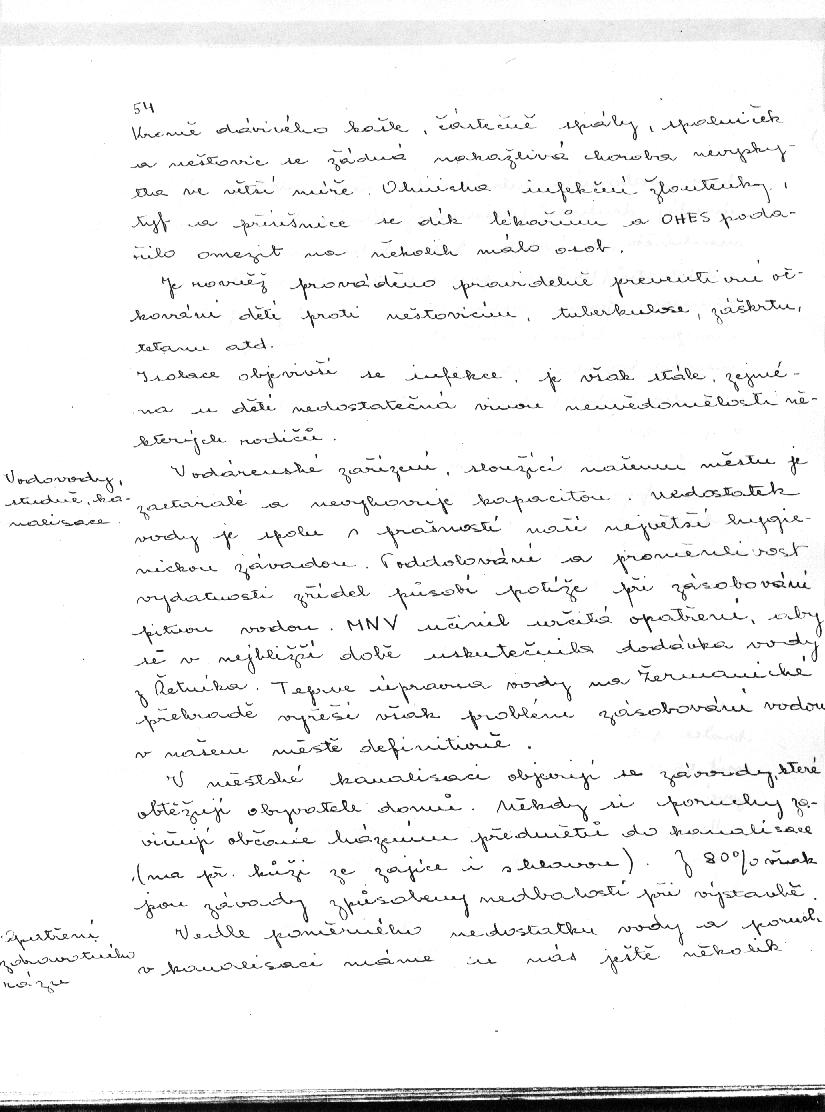 54
Kromě dávivého kašle, částečně spály, spalniček
a neštovic se žádná nakažlivá choroba nevysky-
tla ve větší míře. Ohniska infekční žloutenky,
tyf a příušnice se dík lékařům a OHES poda-
řilo omezit na několik málo osob.
Je rovněž prováděno pravidelné preventivní oč-
kování dětí proti neštovicím, tuberkulose, záškrtu,
tetanu atd.
Isolace objevivší se infekce, je však stále, zejmé-
na u dětí nedostatečná vinou neuvědomělosti ně-
kterých rodičů.
Vodovody,
studně, ka-
nalisace.
Vodárenské zařízení, sloužící našemu městu je
zastaralé a nevyhovuje kapacitou. Nedostatek
vody je spolu s prašností naší největší hygie-
nickou závadou. Poddolování a proměnlivost
vydatnosti zřídel působí potíže při zásobování
pitnou vodou. MNV učinil určitá opatření, aby
se v nejbližší době uskutečnila dodávka vody
z Řetníka. Teprve úpravna vody na Žermanické
přehradě vyřeší však problém zásobování vodou
v našem městě definitivně.
V městské kanalisaci objevují se závady, které
obtěžují obyvatele domů. Někdy si poruchy za-
viňují občané házením předmětů do kanalisace
(na př. kůží ze zajíce i s hlavou). Z 80% však
jsou závady způsobeny nedbalostí při výstavbě.
Zpestření
zdravotního
rázu
Vedle poměrného nedostatku vody a poruch
v kanalisaci máme u nás ještě několik